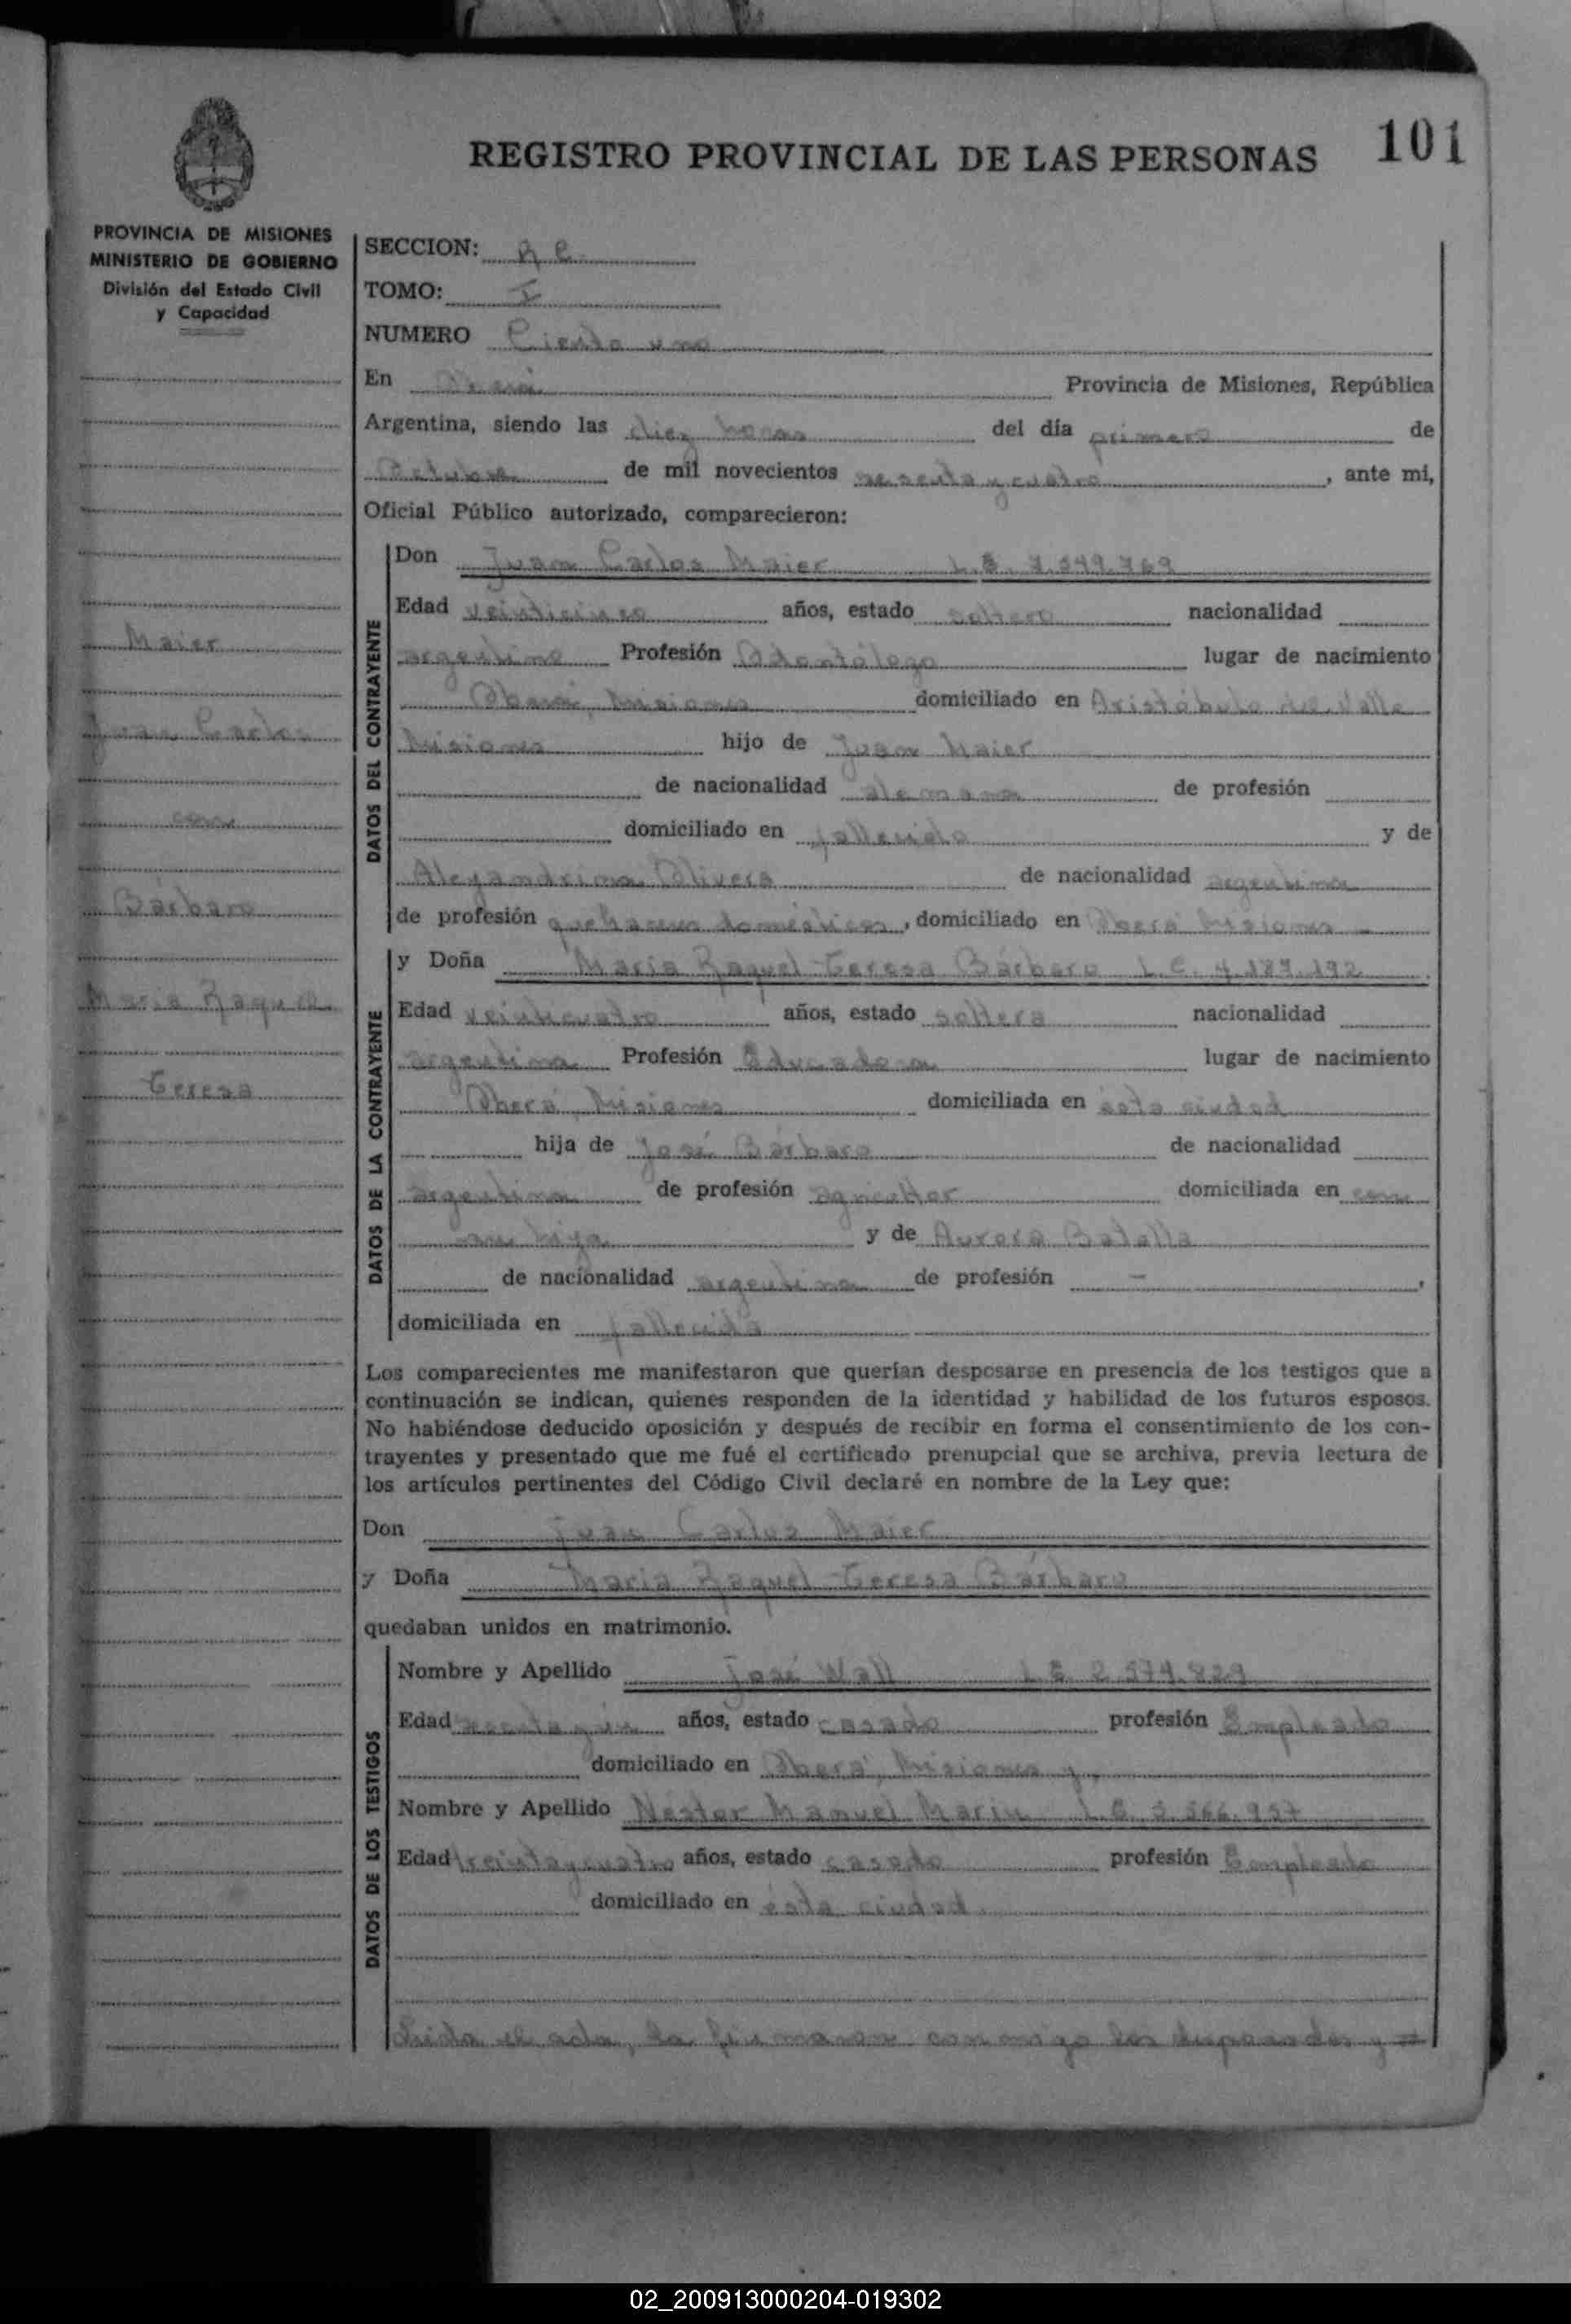 REGISTRO PROVINCIAL DE LAS PERSONAS
101
PROVINCIA DE MISIONES
MINISTERIO DE GOBIERNO
División del Estado Civil
y Capacidad
Maier
Juan Carlos
con
Bárbaro
María Raquel
Teresa
SECCION: R C
TOMO: I
NUMERO Ciento uno
En Oberá Provincia de Misiones, República
Argentina, siendo las diez horas del día primero de
Octubre de mil novecientos sesenta y cuatro, ante mi,
Oficial Público autorizado, comparecieron:
DATOS DEL CONTRAYENTE
Don Juan Carlos Maier L.E. 7.549.769
Edad veinticinco años, estado soltero nacionalidad
argentino Profesión Odontólogo lugar de nacimiento
Oberá, Misiones domiciliado en Aristóbulo del Valle
Misiones hijo de Juan Maier
de nacionalidad alemana de profesión
domiciliado en fallecido y de
Alejandrina Olivera de nacionalidad argentina
de profesión quehaceres domésticos, domiciliado en Oberá Misiones -
DATOS DE LA CONTRAYENTE
y Doña María Raquel Teresa Bárbaro L.C. 4.189.192
Edad veinticuatro años, estado soltera nacionalidad
argentina Profesión Educadora lugar de nacimiento
Oberá, Misiones domiciliada en ésta ciudad
hija de José Bárbaro de nacionalidad
argentina de profesión agricultor domiciliada en con
su hija y de Aurora Batalla
de nacionalidad argentina de profesión -,
domiciliada en fallecida
Los comparecientes me manifestaron que querían desposarse en presencia de los testigos que a
continuación se indican, quienes responden de la identidad y habilidad de los futuros esposos.
No habiéndose deducido oposición y después de recibir en forma el consentimiento de los con-
trayentes y presentado que me fué el certificado prenupcial que se archiva, previa lectura de
los artículos pertinentes del Código Civil declaré en nombre de la Ley que:
Don Juan Carlos Maier
y Doña María Raquel Teresa Bárbaro
quedaban unidos en matrimonio.
DATOS DE LOS TESTIGOS
Nombre y Apellido José Wall L.E. 2.574.829
Edad años, estado casado profesión Empleado
domiciliado en Oberá, Misiones y,
Nombre y Apellido Nestor Manuel Marin L.E. 5.566.957
Edad treinta y cuatro años, estado casado profesión Empleado
domiciliado en ésta ciudad
Leida el acta, la firmaron conmigo los desposados y
02_200913000204-019302